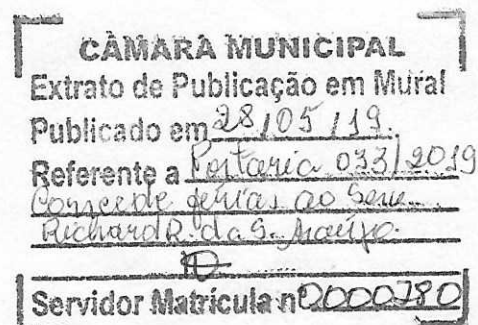 CÂMARA MUNICIPAL
Extrato de Publicação em Mural
Publicado em 28/05/19.
Referente a Portaria 033/2019
Concede férias ao Serv.
Richard R. da S. Araújo.
Servidor Matrícula nº 0000780